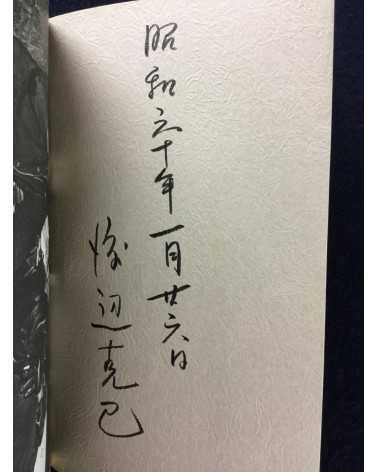 昭和六十年一月廿六日
渡辺克巳